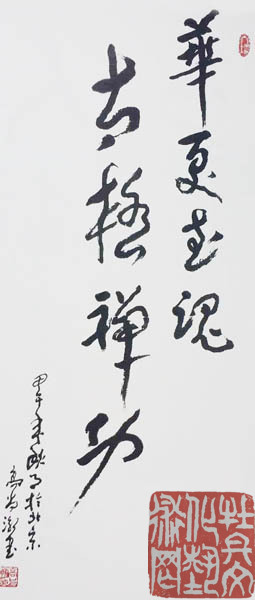 華夏武魂
太極禪功
甲午年秋月於北京